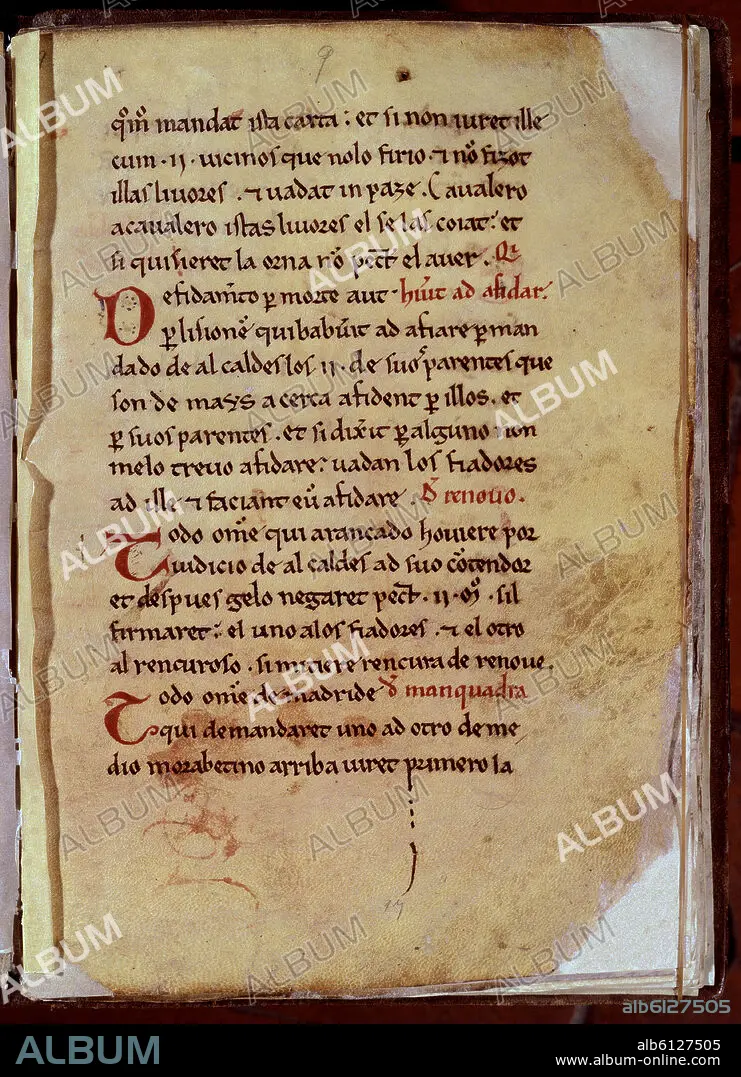 9
q̄m̄ mandat ista carta: et si non iuret ille
cum · ij · vicinos que nolo firio · ⁊ nō fizot
illas livores · ⁊ vadat in paze · Cavalero
a cavalero istas livores el se las coiat: et
si quisieret la orna nō pect̄ el aver ·
De fidam̄to p̱ morte aut · hūīt ad afidar:
p̱ lisionē qui babuīt ad afiare p̱ man
dado de al caldes los ij · de suoˢ parentes que
son de mays a cerca afident p̱ illos · et
p̱ suos parentes · et si dix̄it p̱ alguno non
melo trevo afidare: vadan los fiadores
ad ille ⁊ faciant eū afidare D̄ renovo ·
Todo om̄e qui arancado hovere por
iuidicio de al caldes ad suo cōtendor
et despues gelo negaret pect̄ · ij · m̄ · sil
firmaret: el uno a los fiadores · ⁊ el otro
al rencuroso · si miciere rencura de renove ·
Todo om̄e de madride D̄ manquadra
qui demandaret uno ad otro de me
dio morabetino arriba iuret primero la
ALBUM
alb6127505
ALBUM
alb6127505
www.album-online.com